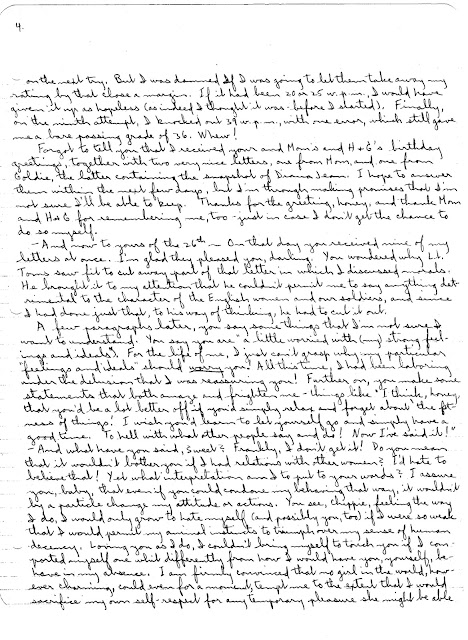 4.
- on the next try. But I was damned if I was going to let them take away my
rating by that close a margin. If it had been 20 or 25 w.p.m., I would have
given it up as hopeless (as indeed I thought it was - before I started). Finally,
on the ninth attempt, I knocked out 39 w.p.m, with one error, which still gave
me a bare passing grade of 36. Whew!
Forgot to tell you that I received your and Mom's and H+G's birthday
greetings, together with two very nice letters, one from Mom, and one from
Goldie, the latter containing the snapshot of Dianna Jean. I hope to answer
them within the next few days, but I'm through making promises that I'm
not sure I'll be able to keep. Thanks for the greeting, honey, and thank Mom
and H&G for remembering me, too - just in case I don't get the chance to
do so myself.
- And now to yours of the 26th - On that day you received nine of my
letters at once. I'm glad they pleased you, darling. You wondered why Lt.
Toms saw fit to cut away part of that letter in which I discussed morals.
He brought it to my attention that he couldn't permit me to say anything det-
rimental to the character of the English women and our soldiers, and since
I had done just that, to his way of thinking, he had to cut it out.
A few paragraphs later, you say some things that I'm not sure I
want to understand! You say you are "a little worried with (my) strong feel-
ings and ideals". For the life of me, I just can't grasp why my particular
"feelings and ideals" should worry you! All this time, I had been laboring
under the delusion that I was reassuring you! Further on, you make some
statements that both amaze and frighten me - things like "I think, honey,
that you'd be a lot better off if you'd simply relax and 'forget about' the fit-
ness of things! I wish you'd learn to let yourself go and simply have a
good time. To hell with what other people say and do! Now I've said it!"
- And what have you said, Sweet? Frankly, I don't get it! Do you mean
that it wouldn't bother you if I had relations with other women? I'd hate to
believe that! Yet what interpretation am I to put to your words? I assure
you, baby, that even if you could condone my behaving that way, it wouldn't
by a particle change my attitude or actions. You see, chippie, feeling the way
I do, I would only grow to hate myself (and possibly you, too) if I were so weak
that I would permit my animal instincts to triumph over my sense of human
decency. Loving you as I do, I couldn't bring myself to touch you if I com-
ported myself one whit differently from how I would have you, yourself, be-
have in my absence. I am firmly convinced that no girl in the world, how-
ever charming could even for a moment, tempt me to the extent that I would
sacrifice my own self-respect for any temporary pleasure she might be able